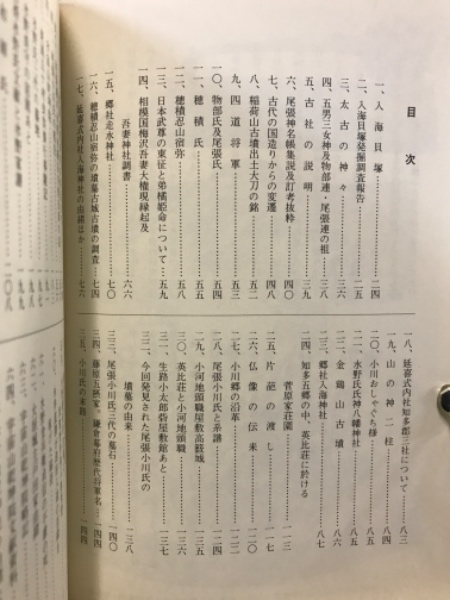 目次
一、入海貝塚……二四
二、入海貝塚発掘調査報告……二五
三、太古の神々……三六
四、五男三女神及物部連・尾張連の祖…三八
五、古社の説明……三九
六、尾張神名帳集説及訂考抜粋……四〇
七、古代の国造りからの変遷……四七
八、稲荷山古墳出土大刀の銘……五二
九、四道将軍……五三
一〇、物部氏及尾張氏……五四
一一、穂積氏……五五
一二、穂積忍山宿弥……五八
一三、日本武尊の東征と弟橘姫命について…五九
一四、相模国梅沢吾妻大権現縁起及
吾妻神社調書……六六
一五、郷社走水神社……七〇
一六、穂積忍山宿弥の墳墓古城古墳の調査…七四
一七、延喜式内社入海神社の由緒ほか…七六
一八、延喜式内社知多郡三社について…八三
一九、山の神二柱……八四
二〇、小川おしゃぐち様……八四
二一、水野氏氏神八幡神社……八五
二二、金鶏山古墳……八六
二三、郷社入海神社……八七
二四、知多五郷の中、英比荘に於ける
菅原家荘園……一一三
二五、片葩の渡し……一一七
二六、仏像の伝来……一二〇
二七、小川郷の沿革……一二二
二八、尾張小川氏と系譜
二九、小河地頭職屋敷高籔城……一三五
三〇、英比荘と小河地頭職……一三六
三一、生路小太郎砦屋敷館あと……一三七
三二、今回発見された尾張小川氏の
墳墓の由来……一三八
三三、尾張小川氏三代の墓石……一四〇
三四、藤原五摂家・鎌倉幕府歴代将軍名…一四四
三五、小川氏の末路……一四四